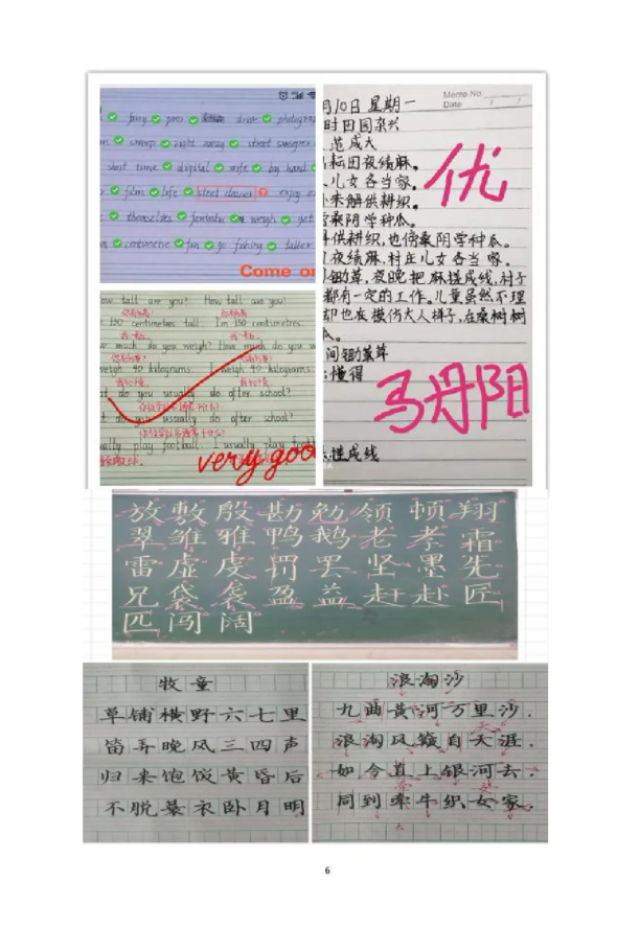 fairy pores drive photograph
m snoop right away street sweeper
short time digital wife big hand
film life street cleaner enjoy
themselves fantastic weigh get
centimetre fun go fishing taller
Come on
How tall are you? How tall are you?
150 centimetres tall. I'm 150 centimetres
much do you weigh? How much do you w
weigh 40 kilograms. I weigh 40 kilograms.
t do you usually do after school?
t do you usually do after school?
ally play football. I usually play footb
very good
月10日 星期一
Memo No.
Date / /
时田园杂兴
范成大
耘田夜绩麻。
儿女各当家。
未解供耕织,
桑阴学种瓜。
供耕织,也傍桑阴学种瓜。
夜绩麻,村庄儿女各当家。
锄草,夜晚把麻搓成线,村子
都有一定的工作。儿童虽然不理
却也在模仿大人样子,在桑树树
间锄菜草
懂得
搓成线
优
马丹阳
放敷殷勘勉领顿翔
翠雏雅鸭鹅老孝霜
雷虚虎罚罢坚墨先
兄袋袭盈益赶赴匠
匹闯阔
牧童
草铺横野六七里
笛弄晚风三四声
归来饱饭黄昏后
不脱蓑衣卧月明
浪淘沙
九曲黄河万里沙,
浪淘风簸自天涯.
如今直上银河去,
同到牵牛织女家.
6